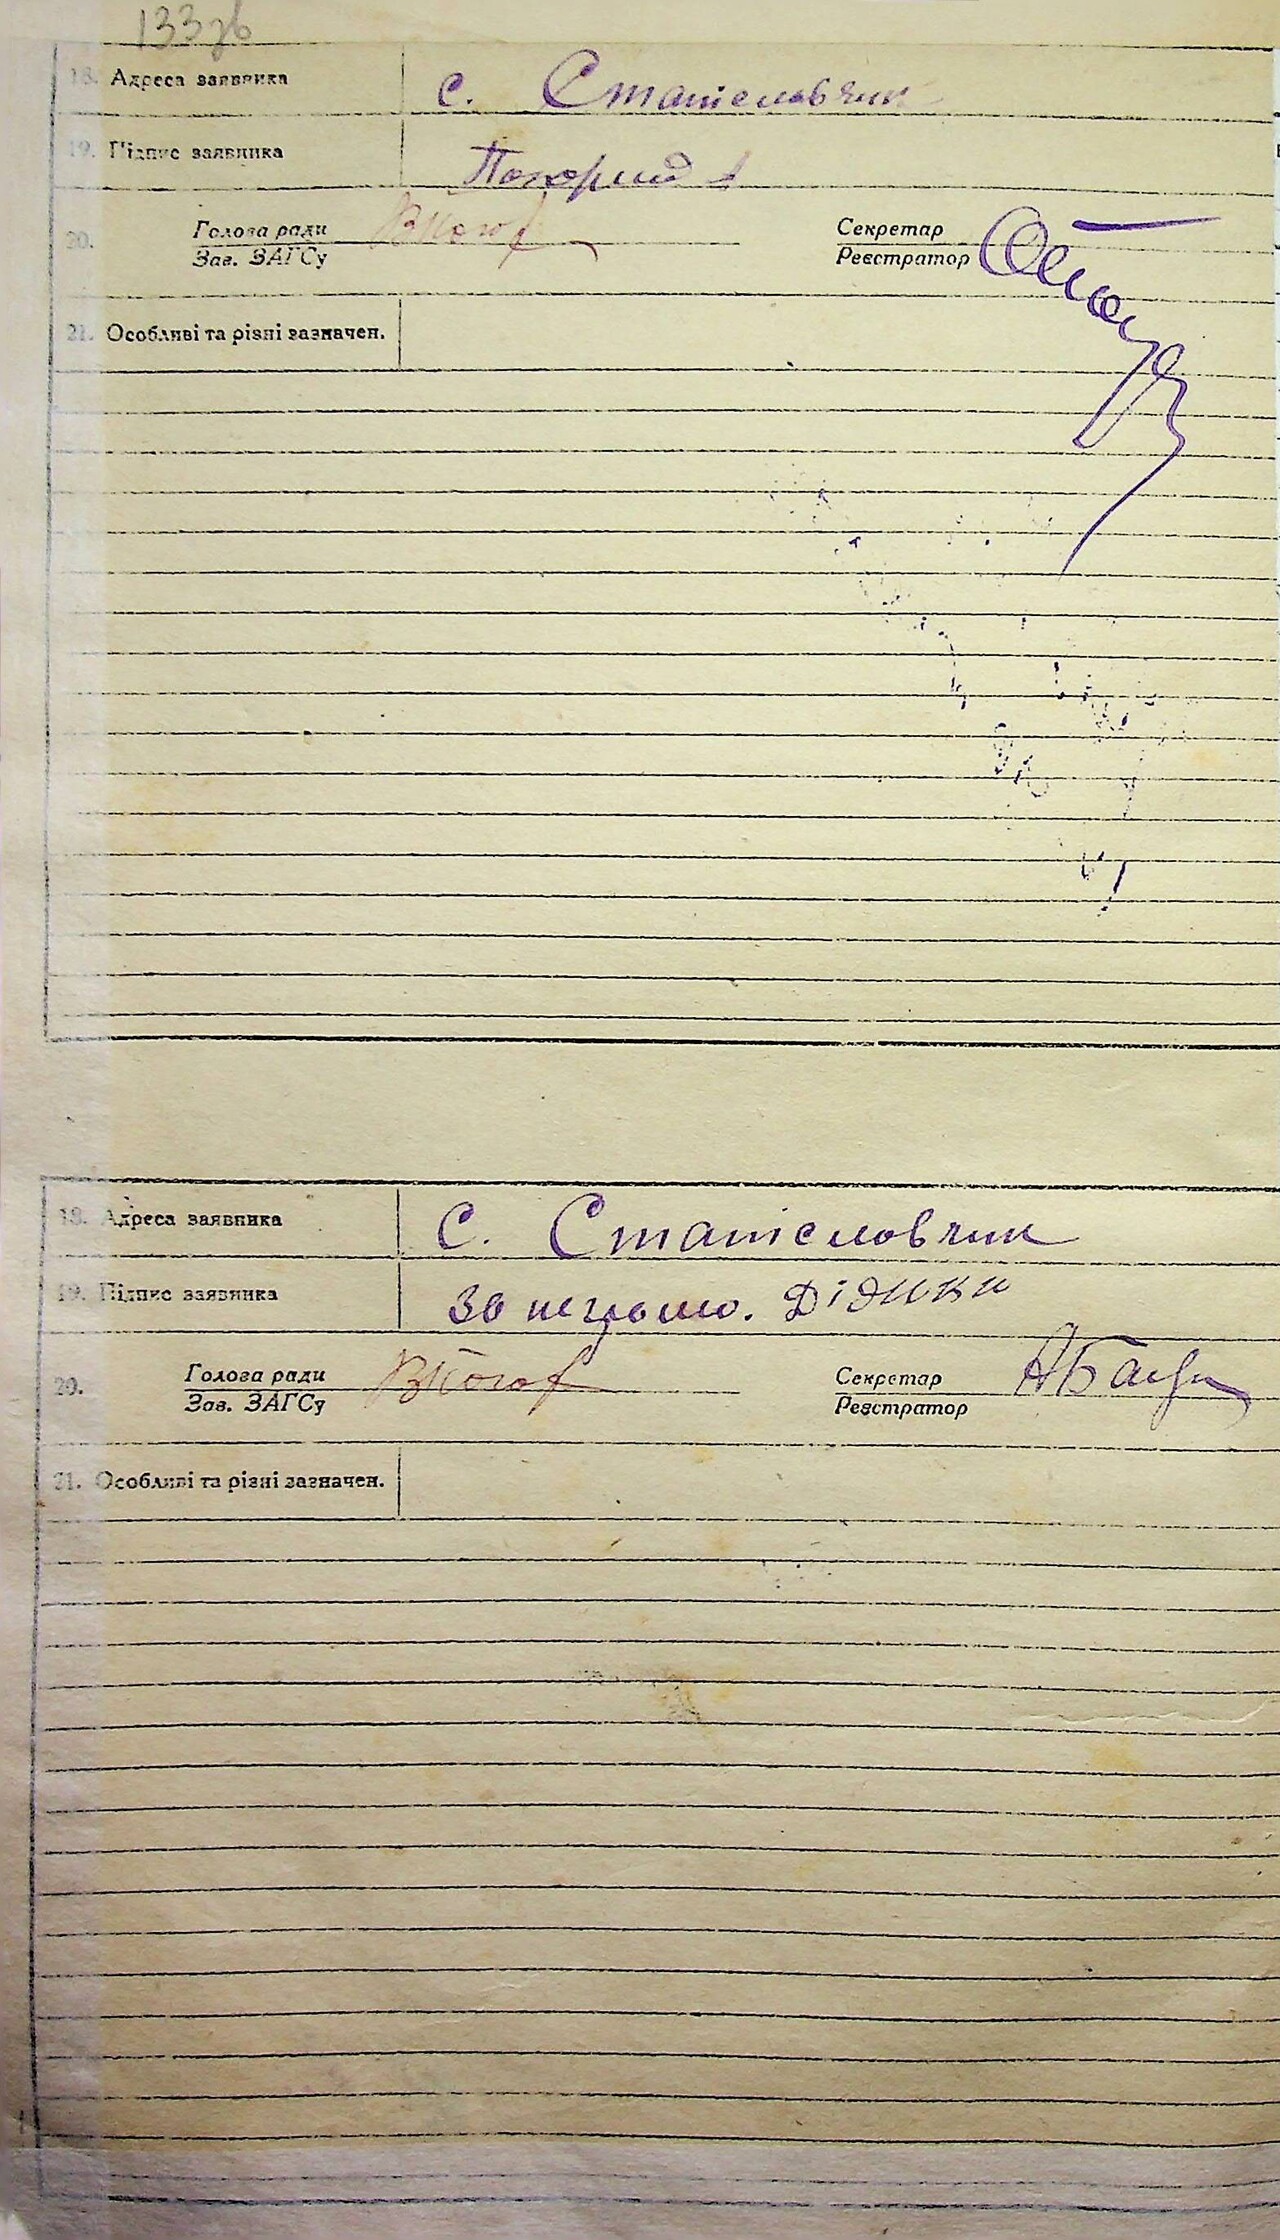 133зв
18. Адреса заявника с. Станіславчик
19. Підпис заявника
20. Голова ради Секретар
Зав. ЗАГСу Реєстратор
21. Особливі та різні зазначен.
18. Адреса заявника с. Станіславчик
19. Підпис заявника за неграмо. Дідики
20. Голова ради Секретар
Зав. ЗАГСу Реєстратор
21. Особливі та різні зазначен.